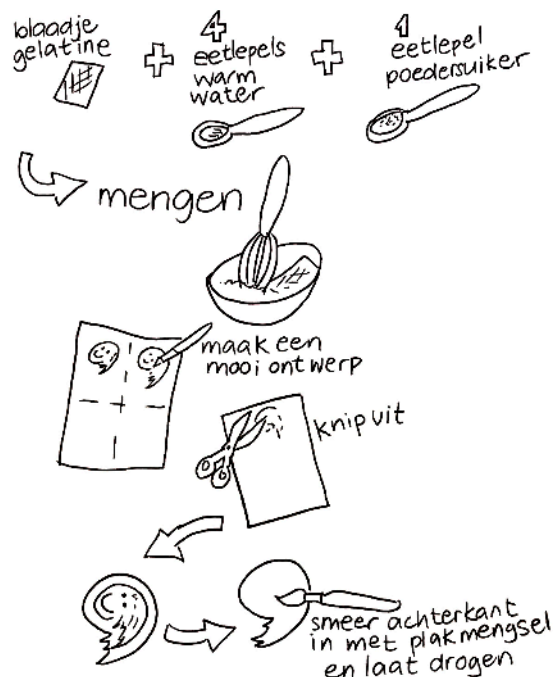 blaadje
gelatine
+
4
eetlepels
warm
water
+
1
eetlepel
poedersuiker
mengen
maak een
mooi ontwerp
knip uit
smeer achterkant
in met plakmengsel
en laat drogen